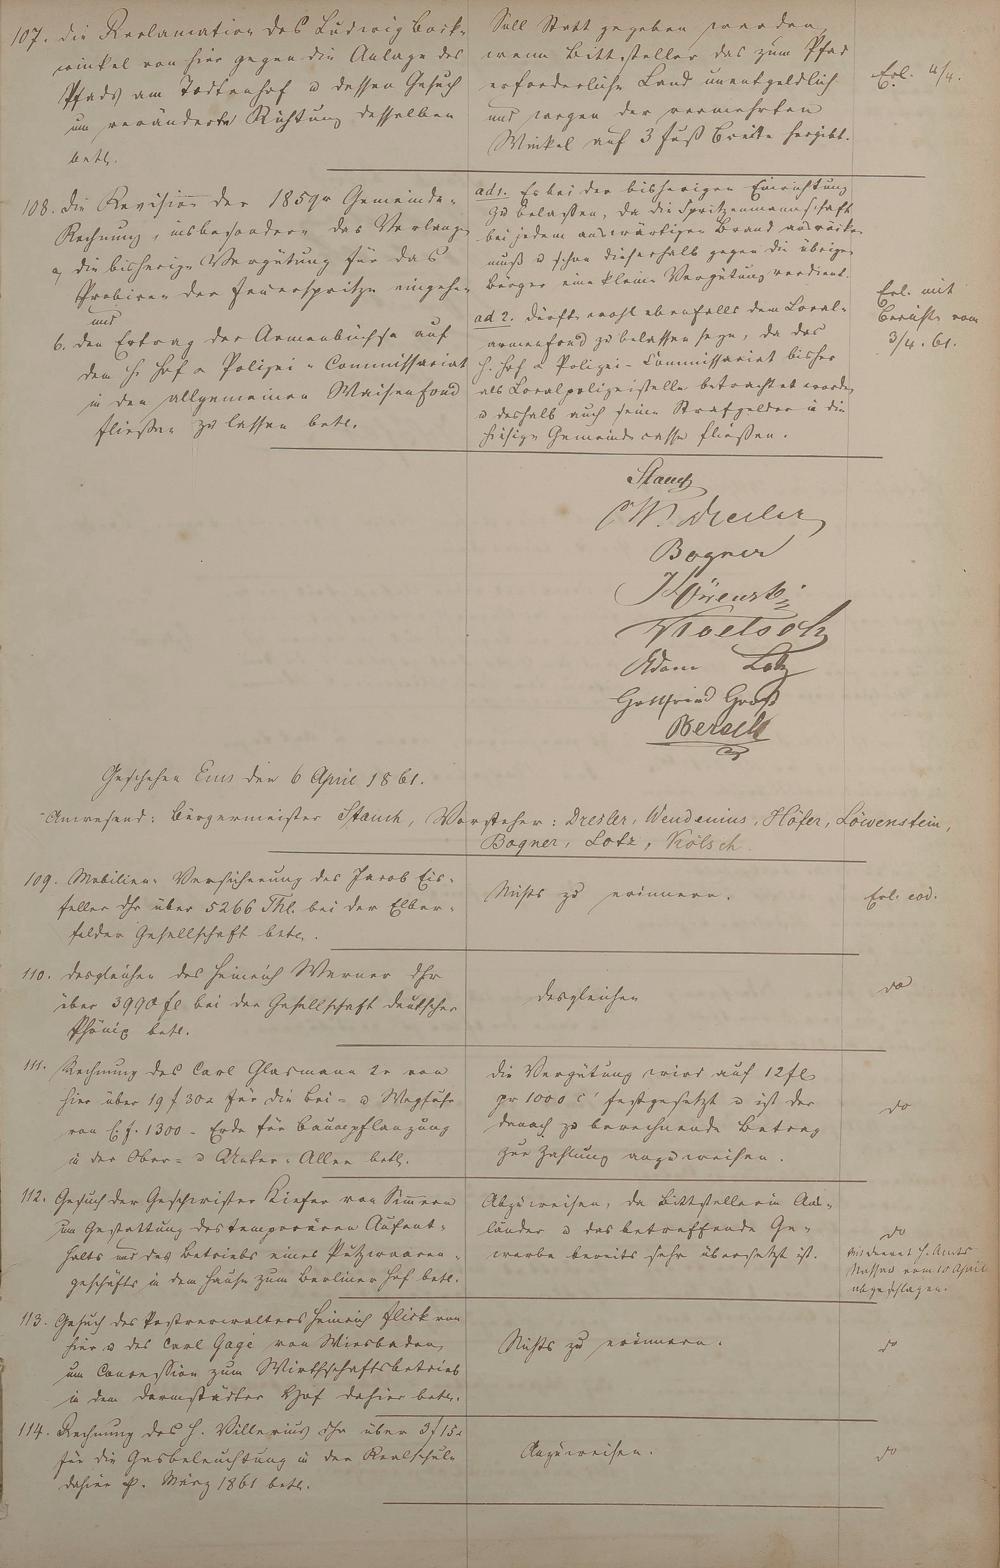 107. Die Reclamation des Ludwig Bork-
winkel von hier gegen die Anlage des
Pfads am Todtenhof u dessen Gesuch
um veränderte Richtung desselben
betr.
Soll Statt gegeben werden,
wenn Bittsteller das zum Pfad
erforderliche Land unentgeldlich
und wegen der vermehrten
Winkel auf 3 Fuß Breite hergibt.
Erl. 4/4.
108. Die Revision der 1859r Gemeinde-
Rechnung, insbesondere das Verlangen
a, die bisherige Vergütung für das
Probiren der Feuerspritze eingehen
und
b. den Ertrag der Armenbüchse auf
dem H. Hof- Polizei-Commissariat
in den allgemeinen Waisenfond
fließen zu lassen betr.
ad 1. Es bei der bisherigen Einrichtung
zu belassen, da die Spritzenmannschaft
bei jedem auswärtigen Brand ausrücken
muß u schon dieserhalb gegen die übrigen
Bürger eine kleine Vergütung verdient.
ad 2. dürfte wohl ebenfalls dem Local-
armenfond zu belassen seyn, da das
H. Hof- Polizei-Commissariat bisher
als Localpolizeistelle betrachtet worden
u deshalb auch seine Strafgelder in die
hiesige Gemeindecasse fließen.
Erl. mit
Bericht vom
3/4. 61.
Stauch
C W. Dresler
Bogner
Koelsch
Adam Lotz
Gottfried Groß
Bersch
Geschehen Ems den 6 April 1861.
Anwesend: Bürgermeister Stauch, Vorsteher: Dresler, Wendenius, Höfer, Löwenstein,
Bogner, Lotz, Kölsch.
109. Mobilien-Versicherung des Jacob Eis-
feller dhr über 5266 Thl. bei der Elber-
felder Gesellschaft betr.
Nichts zu erinnern.
Erl. eod.
110. desgleichen des Heinrich Werner dhr
über 3990 fl bei der Gesellschaft deutscher
Phönix betr.
desgleichen
do
111. Rechnung des Carl Glasmann 2r von
hier über 19 f 30x für die Bei- u Wegfuhr
von Cf. 1300 - Erde für Baumpflanzung
in der Ober- u Unter-Allee betr.
Die Vergütung wird auf 12 fl
pr 1000 c' festgesetzt u ist der
danach zu berechnende Betrag
zur Zahlung anzuweisen.
do
112. Gesuch der Geschwister Kiefer von Simmern
um Gestattung des temporären Aufent-
halts und des Betriebs eines Putzwaaren-
geschäfts in dem Hause zum Berliner Hof betr.
Abzuweisen, da Bittstellerin Aus-
länder u das betreffende Ge-
werbe bereits sehr übersetzt ist.
do
Mit Decret H. Amts
Nassau vom 10 April
abgeschlagen.
113. Gesuch des Postverwalters Heinrich Flick von
hier u des Carl Gagé von Wiesbaden,
um Concession zum Wirthschaftsbetrieb
in dem Darmstädter Hof dahier betr.
Nichts zu erinnern.
do
114. Rechnung des H. Villerius dhr über 3 f 15x
für die Gasbeleuchtung in der Realschule
dahier p. März 1861 betr.
Anzuweisen.
do